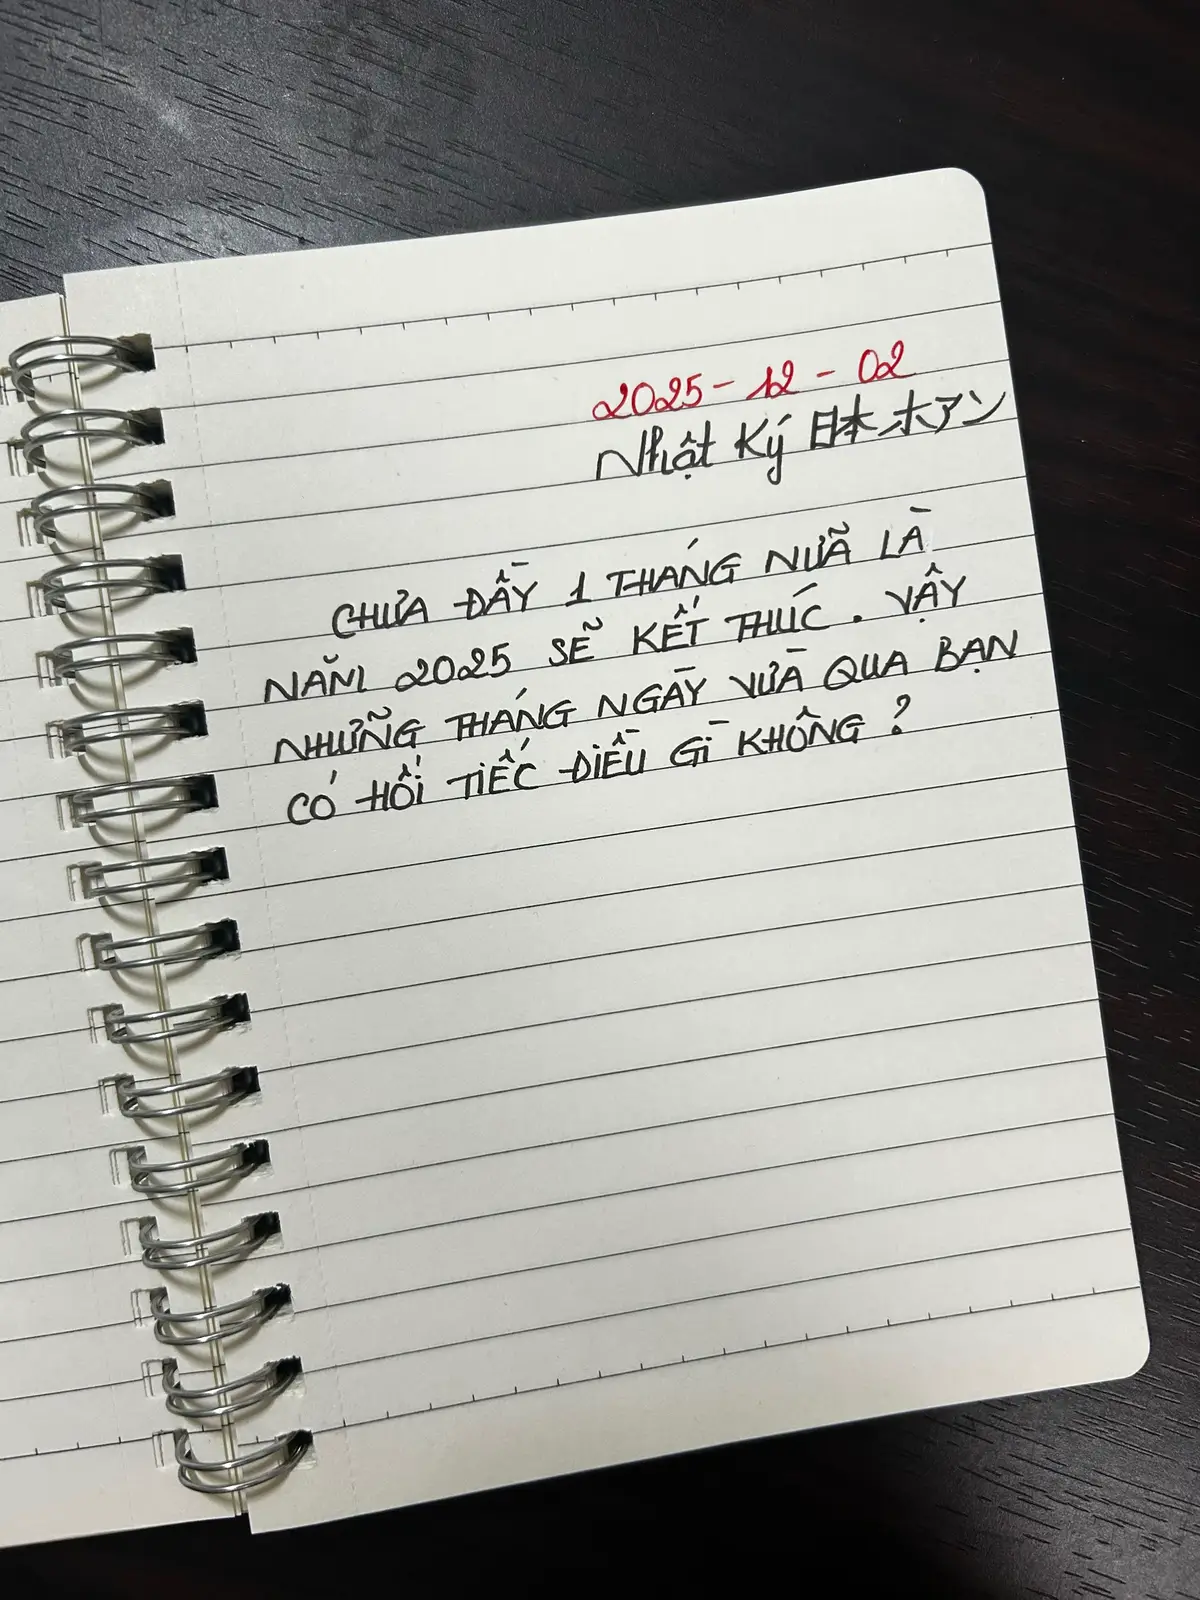 2025-12-02
Nhật Ký 日本ホアン
CHƯA ĐẦY 1 THÁNG NỮA LÀ
NĂM 2025 SẼ KẾT THÚC. VẬY
NHỮNG THÁNG NGÀY VỪA QUA BẠN
CÓ HỐI TIẾC ĐIỀU GÌ KHÔNG?